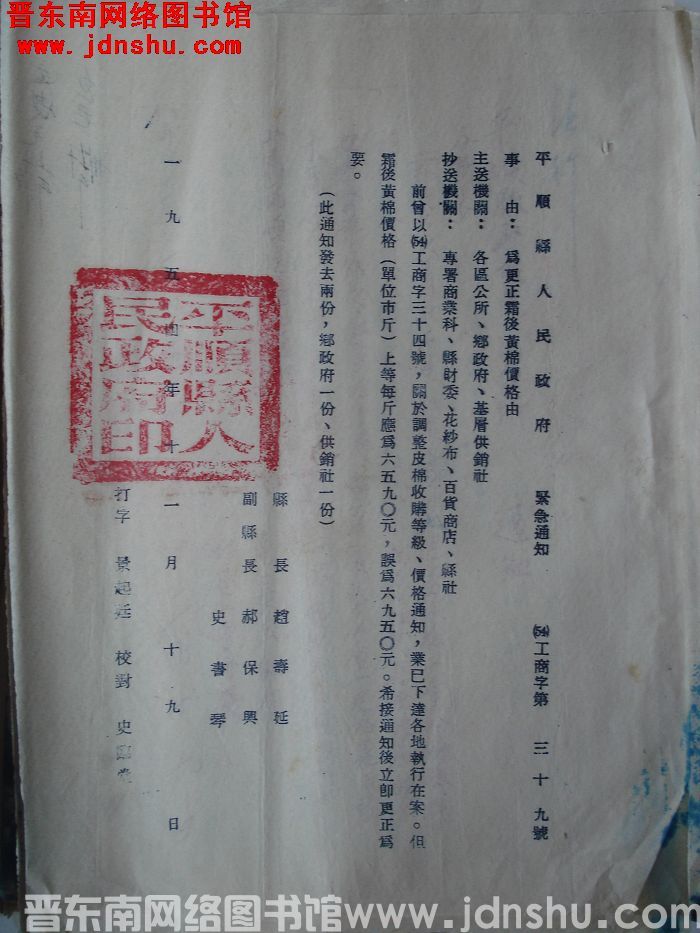 晋东南网络图书馆
www.jdnshu.com
平順縣人民政府 緊急通知 (54)工商字第三十九號
事由：爲更正霜後黃棉價格由
主送機關：各區公所、鄉政府、基層供銷社
抄送機關：專署商業科、縣財委、花紗布、百貨商店、縣社
前曾以(54)工商字三十四號，關於調整皮棉收購等級、價格通知，業已下達各地執行在案。但
霜後黃棉價格（單位市斤）上等每斤應爲六五九〇元，誤爲六九五〇元。希接通知後立即更正爲
要。
（此通知發去兩份，鄉政府一份、供銷社一份）
縣長 趙壽延
副縣長 郝保興
史書琴
一九五四年十一月十九日
平順縣人民政府印
打字 景起廷 校對 史
晋东南网络图书馆www.jdnshu.com